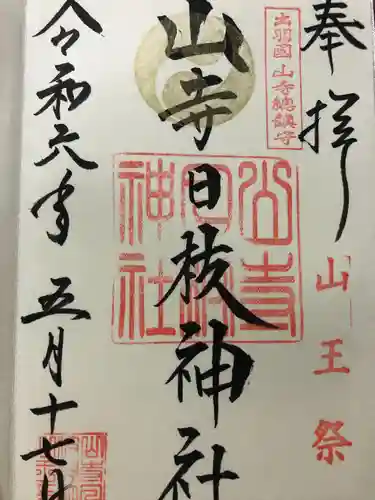 奉拝
山王祭
出羽國 山寺總鎮守
山寺日枝神社
令和六年 五月十七日